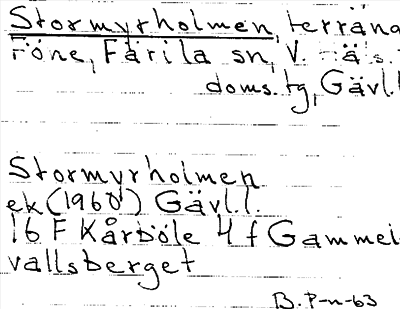 Stormyrholmen, terräng
Föne, Färila sn, V.
doms. tg, Gävl.l
Stormyrholmen
ek (1960) Gävl.l.
16 F Kårböle 4 f Gammel
vallsberget
B. P-n-63